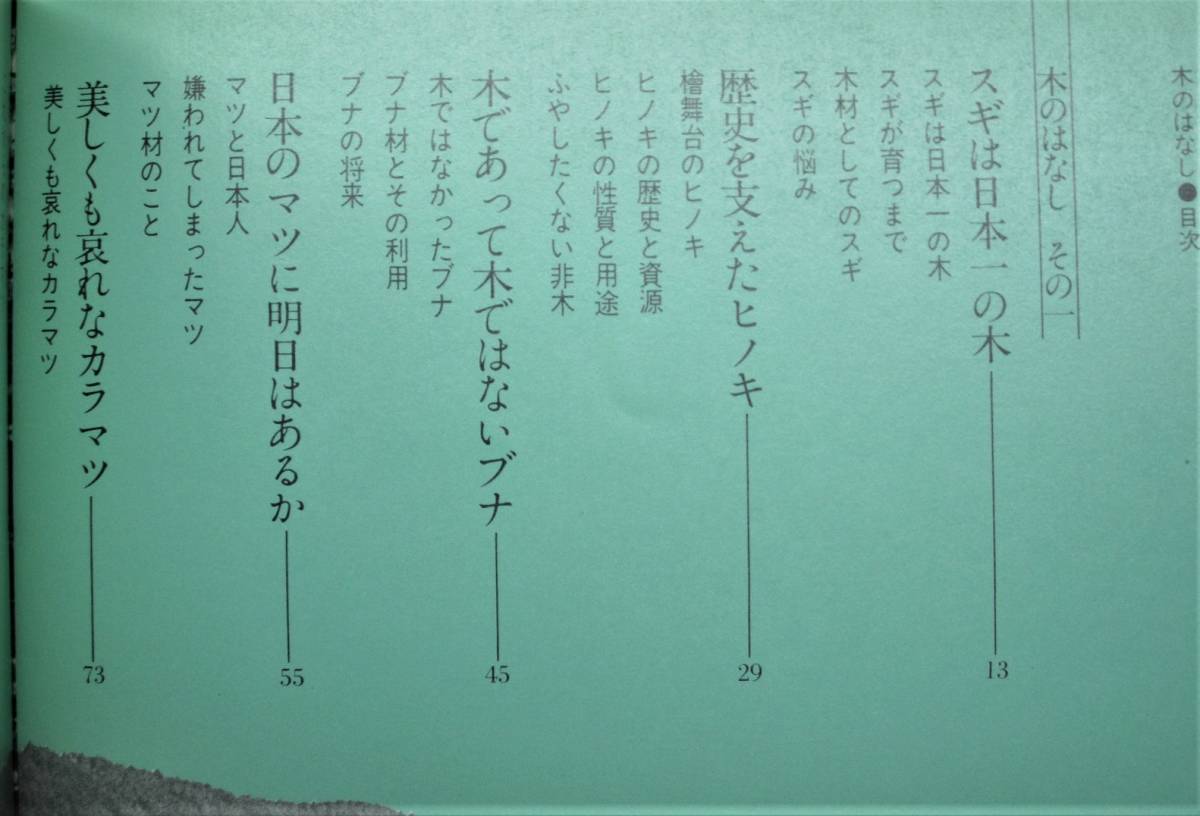 木のはなし●目次
木のはなし その一
スギは日本一の木 13
スギは日本一の木
スギが育つまで
木材としてのスギ
スギの悩み
歴史を支えたヒノキ 29
檜舞台のヒノキ
ヒノキの歴史と資源
ヒノキの性質と用途
ふやしたくない非木
木であって木ではないブナ 45
木ではなかったブナ
ブナ材とその利用
ブナの将来
日本のマツに明日はあるか 55
マツと日本人
嫌われてしまったマツ
マツ材のこと
美しくも哀れなカラマツ 73
美しくも哀れなカラマツ